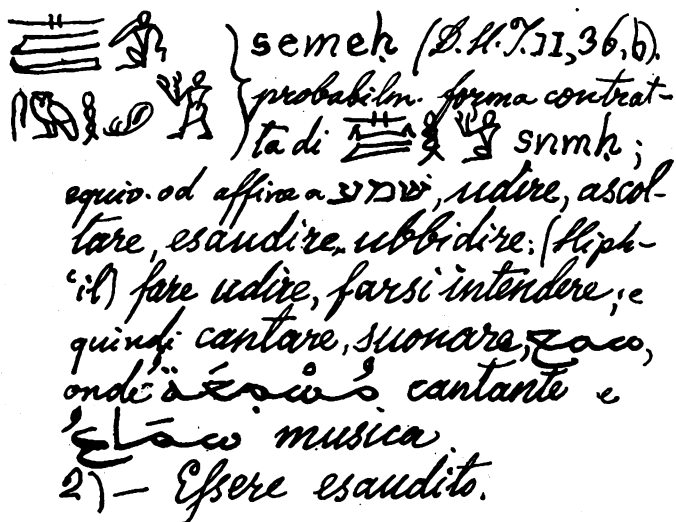 semeḥ (D.H.T. II, 36, b).
probabilm. forma contrat-
ta di snmḥ;
equiv. od affine a שׁמע, udire, ascol-
tare, esaudire, ubbidire; (Hiph-
‘il) fare udire, farsi intendere; e
quindi cantare, suonare,
onde cantante e
musica
2) — Essere esaudito.